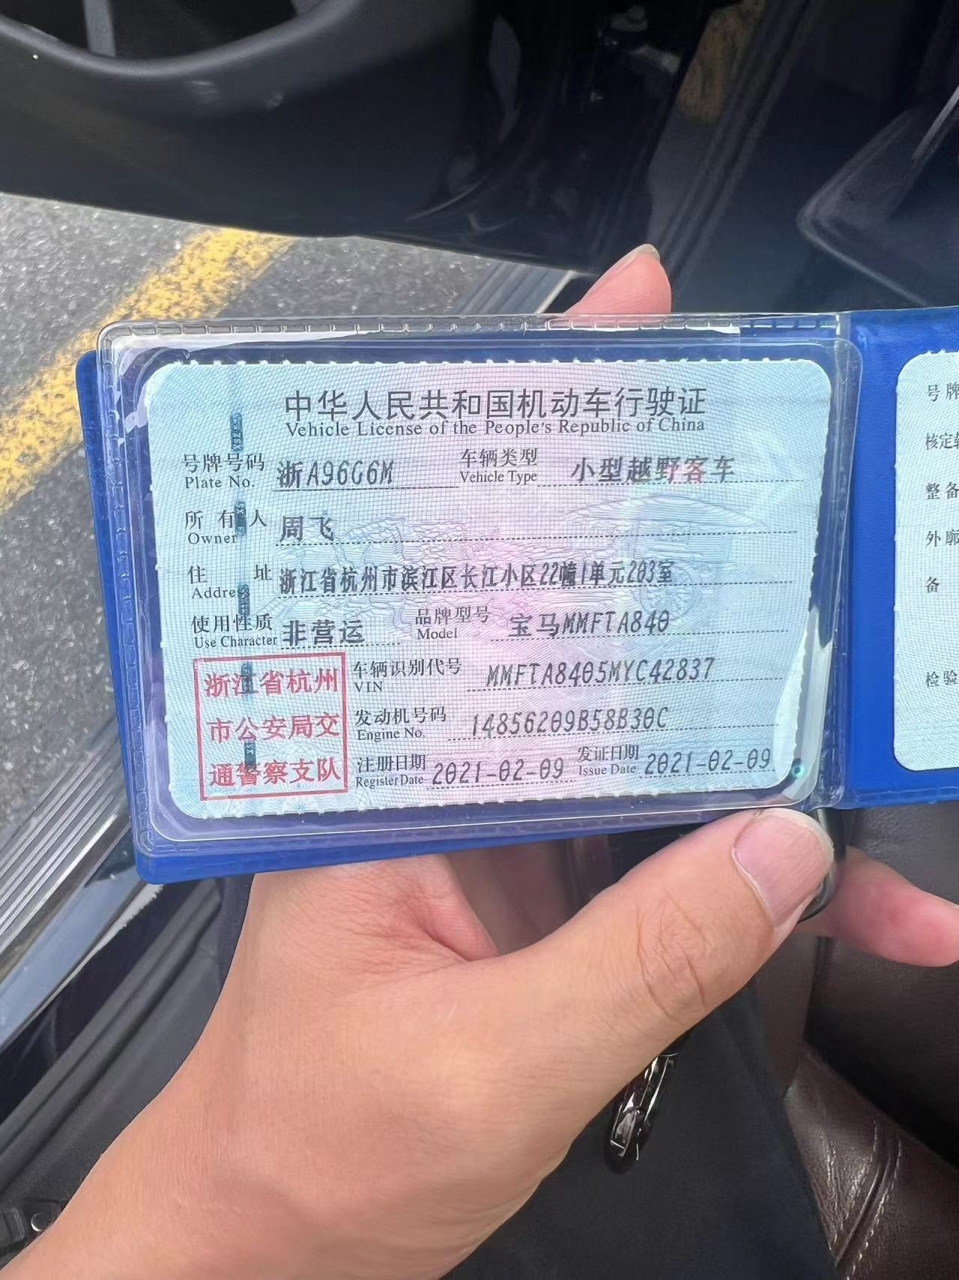 中华人民共和国机动车行驶证
Vehicle License of the People's Republic of China
号牌号码 浙A96G6M 车辆类型 小型越野客车
Plate No. Vehicle Type
所有人 周飞
Owner
住址 浙江省杭州市滨江区长江小区22幢1单元203室
Address
使用性质 非营运 品牌型号 宝马MMFTA840
Use Character Model
浙江省杭州
市公安局交
通警察支队
车辆识别代号 MMFTA8405MYC42837
VIN
发动机号码 14856209B58B30C
Engine No.
注册日期 2021-02-09 发证日期 2021-02-09
Register Date Issue Date
号牌
核定
整备
外廓
备
检验